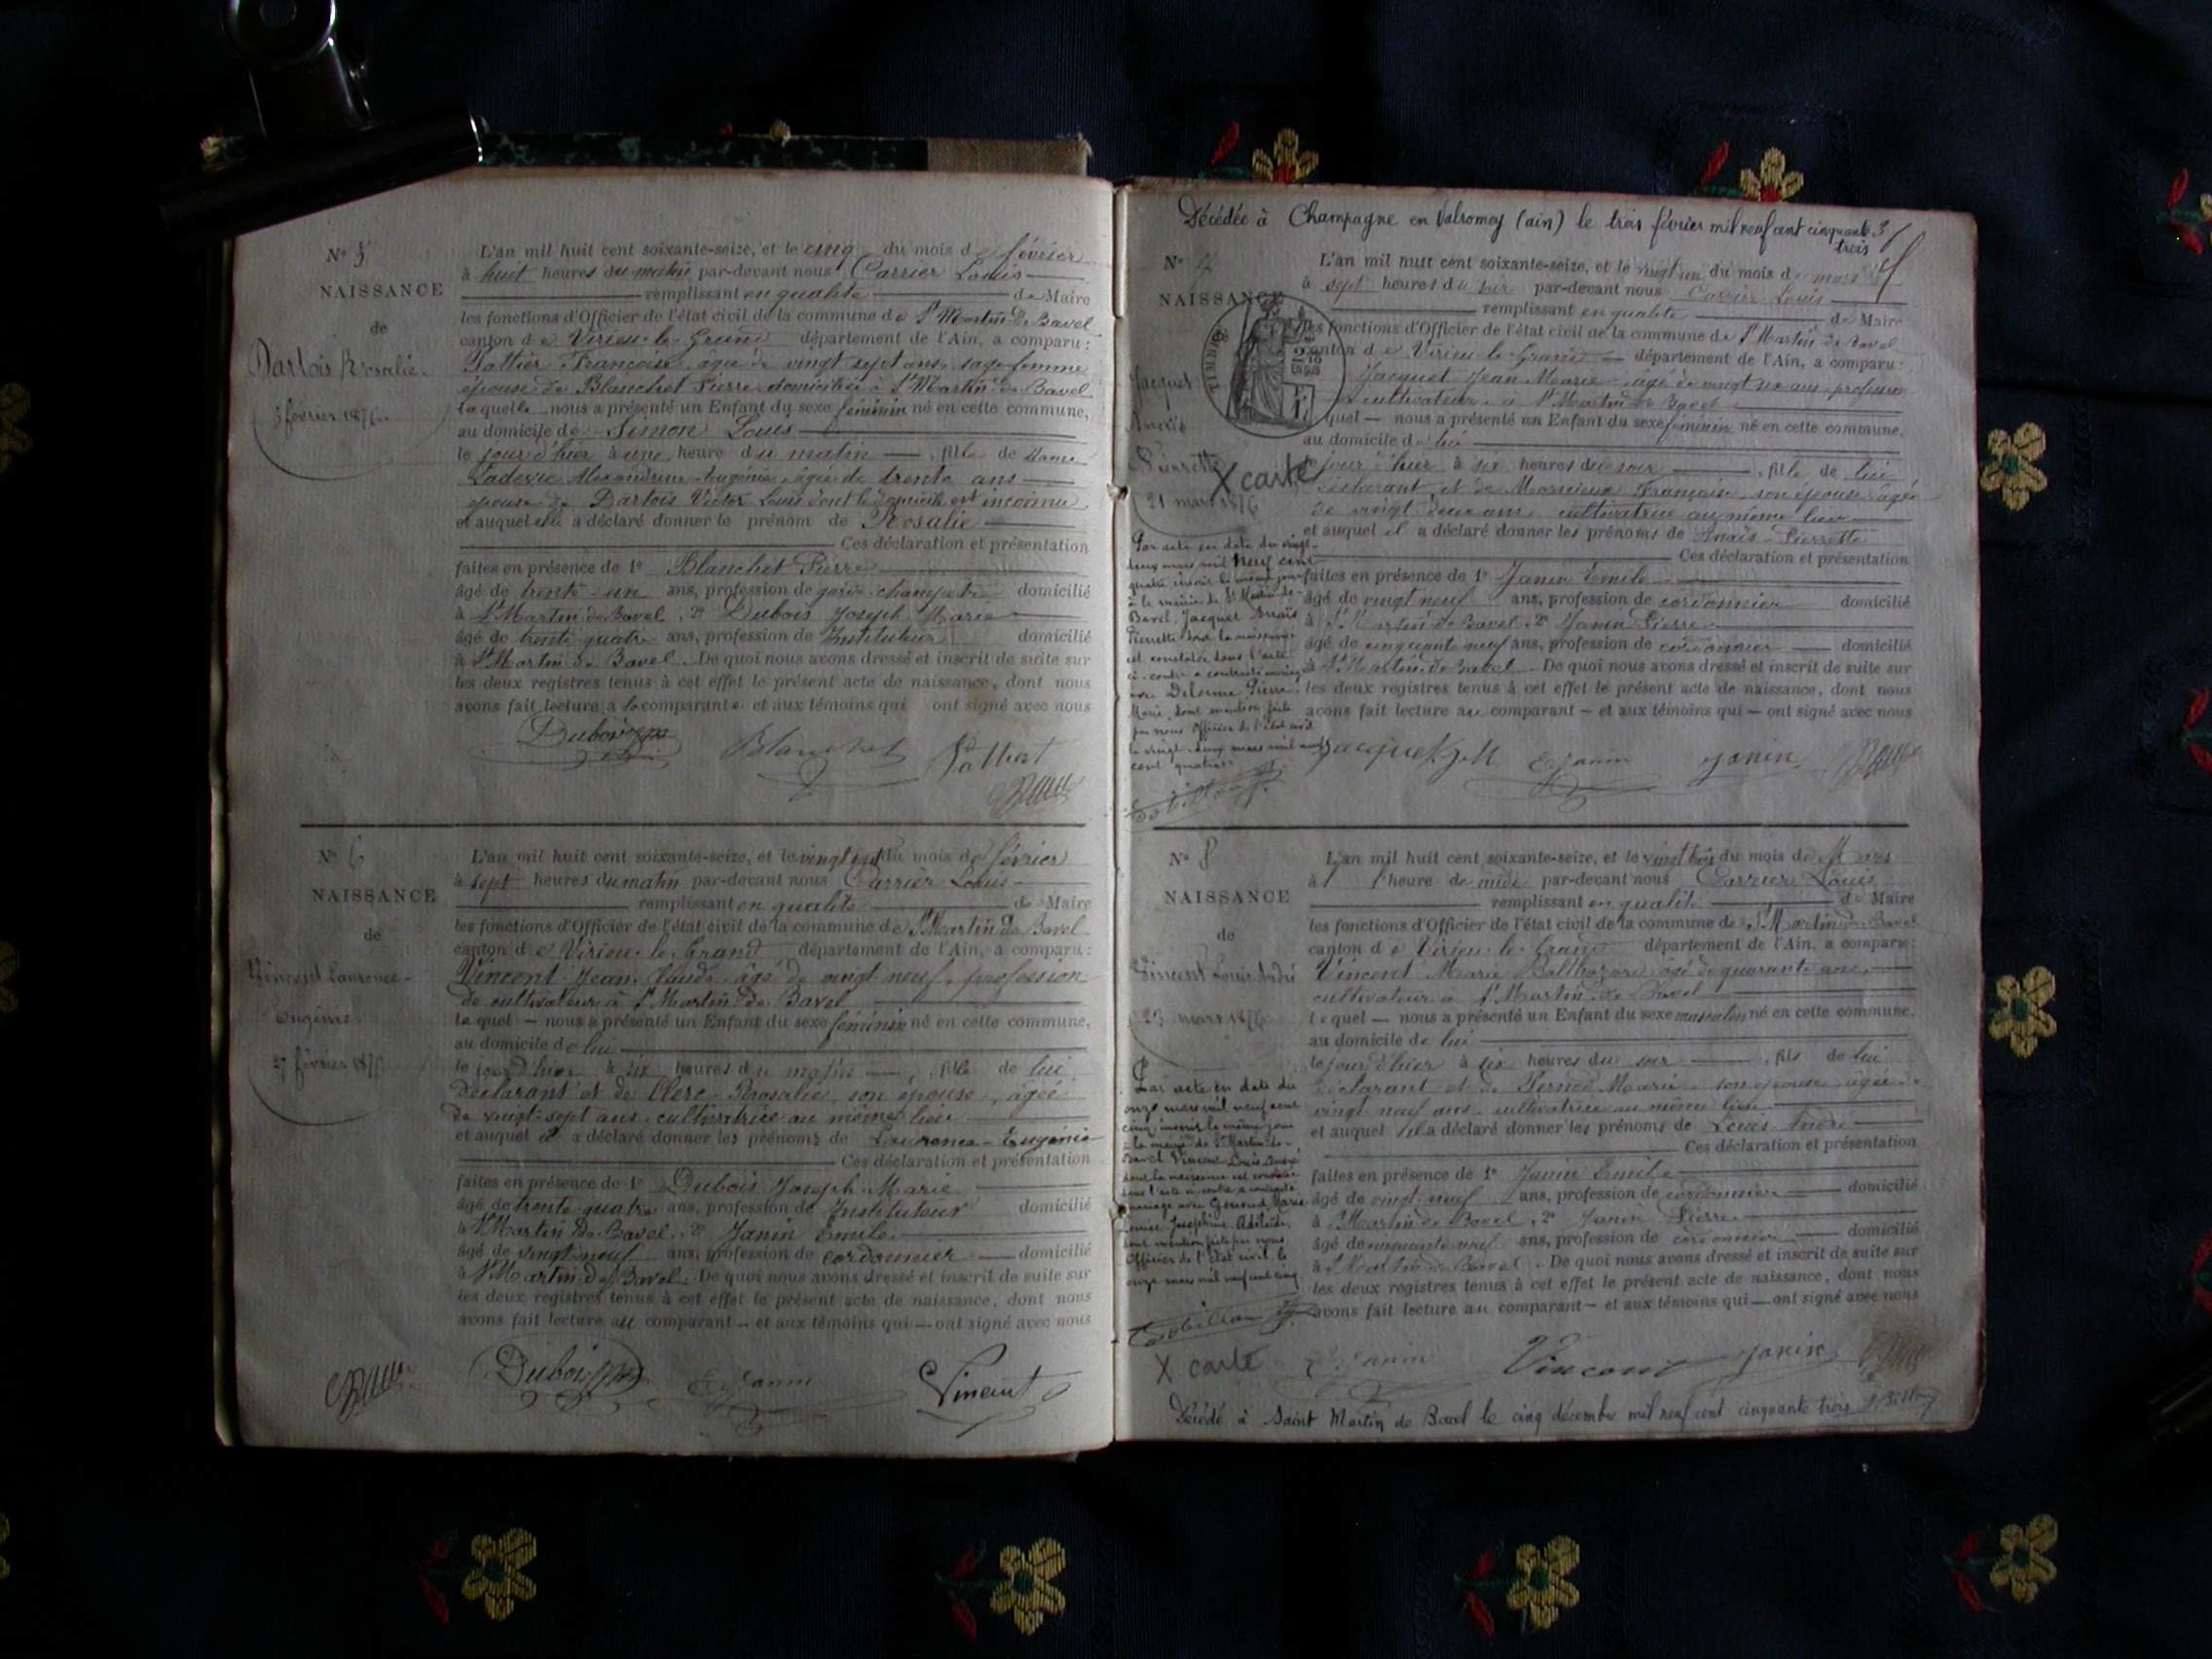 N° 5
NAISSANCE
de
Darlois Rosalie.
5 février 1876.
L'an mil huit cent soixante-seize, et le cinq du mois de février
à huit heures du matin par-devant nous Carrier Louis
remplissant en qualité de Maire
les fonctions d'Officier de l'état civil de la commune de St Martin de Bavel
canton de Virieu-le-Grand département de l'Ain, a comparu :
Françoise, âgée de vingt sept ans, sage-femme
épouse de Blanchet Pierre domiciliée à St Martin de Bavel
laquelle nous a présenté un Enfant du sexe féminin né en cette commune,
au domicile de Simon Louis
le jour d'hier à une heure du matin, fille de dame
Alexandrine Eugénie, âgée de trente ans
épouse de Darlois Victor Louis dont le domicile est inconnu
et auquel elle a déclaré donner le prénom de Rosalie
Ces déclaration et présentation
faites en présence de 1° Blanchet Pierre
âgé de trente-un ans, profession de garde-champêtre domicilié
à St Martin de Bavel, 2° Dubois Joseph Marie
âgé de trente quatre ans, profession de Instituteur domicilié
à St Martin de Bavel. De quoi nous avons dressé et inscrit de suite sur
les deux registres tenus à cet effet le présent acte de naissance, dont nous
avons fait lecture a la comparante et aux témoins qui ont signé avec nous
Dubois Blanchet
N° 6
NAISSANCE
de
Vincent Laurence-
Eugénie.
27 février 1876
L'an mil huit cent soixante-seize, et le vingt sept du mois de février
à sept heures du matin par-devant nous Carrier Louis
remplissant en qualité de Maire
les fonctions d'Officier de l'état civil de la commune de St Martin de Bavel
canton de Virieu-le-Grand département de l'Ain, a comparu :
Vincent Jean Claude âgé de vingt neuf, profession
de cultivateur à St Martin de Bavel
lequel — nous a présenté un Enfant du sexe féminin né en cette commune,
au domicile de lui
le jour d'hier à six heures du matin —, fille de lui
déclarant et de Clerc Rosalie, son épouse, âgée
de vingt-sept ans, cultivatrice au même lieu
et auquel il a déclaré donner les prénoms de Laurence-Eugénie
Ces déclaration et présentation
faites en présence de 1° Dubois Joseph Marie
âgé de trente quatre ans, profession de Instituteur domicilié
à St Martin de Bavel, 2° Janin Emile
âgé de vingt-neuf ans, profession de cordonnier — domicilié
à St Martin de Bavel. De quoi nous avons dressé et inscrit de suite sur
les deux registres tenus à cet effet le présent acte de naissance, dont nous
avons fait lecture au comparant — et aux témoins qui — ont signé avec nous
Dubois E Janin Vincent
Décédée à Champagne en Valromey (ain) le trois février mil neuf cent cinquante
trois
N° 7
NAISSANCE
TIMBRE
Jacquet
Anaïs
Pierrette
X carte
21 mars 1876
L'an mil huit cent soixante-seize, et le vingt un du mois de mars
à sept heures du soir par-devant nous Carrier Louis
remplissant en qualité de Maire
les fonctions d'Officier de l'état civil de la commune de St Martin de Bavel
canton de Virieu-le-Grand — département de l'Ain, a comparu :
Jacquet Jean Marie âgé de vingt ans, profession
cultivateur à St Martin de Bavel
quel — nous a présenté un Enfant du sexe féminin né en cette commune,
au domicile de lui
le jour d'hier à six heures du soir —, fille de lui
déclarant, et de Françoise, son épouse âgée
de vingt deux ans, cultivatrice au même lieu
et auquel il a déclaré donner les prénoms de Anaïs-Pierrette
Ces déclaration et présentation
faites en présence de 1° Janin Emile
âgé de vingt neuf ans, profession de cordonnier domicilié
à St Martin de Bavel, 2° Janin Pierre
âgé de cinquante neuf ans, profession de cordonnier — domicilié
à St Martin de Bavel. De quoi nous avons dressé et inscrit de suite sur
les deux registres tenus à cet effet le présent acte de naissance, dont nous
avons fait lecture au comparant — et aux témoins qui — ont signé avec nous
Par acte en date du vingt-
deux mars mil neuf cent
quatre inscrit le même jour
à la mairie de St Martin-de-
Bavel, Jacquet Anaïs
Pierrette dont la naissance
est constatée dans l'acte
ci-contre a contracté mariage
avec Delorme Pierre-
Marie, dont mention faite
par nous Officier de l'état civil
le vingt-deux mars mil neuf
cent quatre.
Jacquet J M E Janin Janin
N° 8
NAISSANCE
de
Vincent Louis André
23 mars 1876
L'an mil huit cent soixante-seize, et le vingt trois du mois de Mars
à 1 heure de midi par-devant nous Carrier Louis
remplissant en qualité de Maire
les fonctions d'Officier de l'état civil de la commune de St Martin de Bavel
canton de Virieu-le-Grand département de l'Ain, a comparu :
Vincent Marie Balthazard âgé de quarante ans,
cultivateur à St Martin de Bavel
lequel — nous a présenté un Enfant du sexe masculin né en cette commune,
au domicile de lui
le jour d'hier à six heures du soir —, fils de lui
déclarant et de Marie son épouse âgée de
vingt neuf ans, cultivatrice au même lieu
et auquel il a déclaré donner les prénoms de Louis André
Ces déclaration et présentation
faites en présence de 1° Janin Emile
âgé de vingt neuf ans, profession de cordonnier — domicilié
à St Martin de Bavel, 2° Janin Pierre
âgé de cinquante neuf ans, profession de cordonnier — domicilié
à St Martin de Bavel. De quoi nous avons dressé et inscrit de suite sur
les deux registres tenus à cet effet le présent acte de naissance, dont nous
avons fait lecture au comparant — et aux témoins qui — ont signé avec nous
Par acte en date du
onze mars mil neuf cent
cinq, inscrit le même jour
à la mairie de St Martin-de-
Bavel Vincent Louis André
dont la naissance est constatée
dans l'acte ci-contre a contracté
mariage avec Marie
Louise Joséphine Adélaïde,
dont mention faite par nous
Officier de l'état civil le
onze mars mil neuf cent cinq.
X carte
E Janin Vincent Janin
Décédé à Saint Martin de Bavel le cinq décembre mil neuf cent cinquante trois